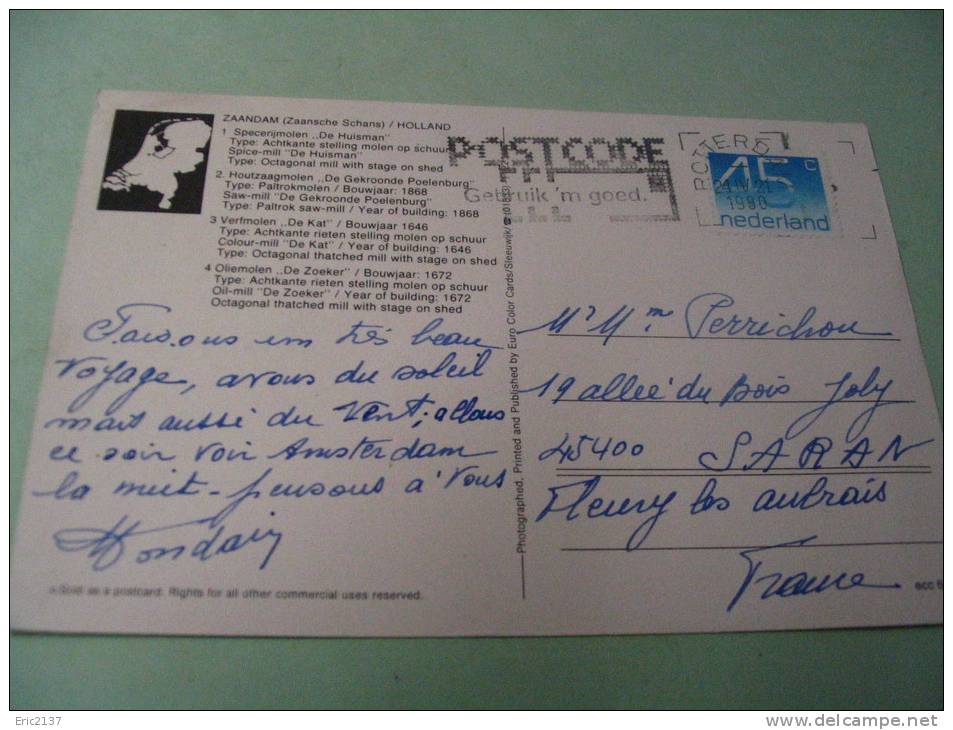 ZAANDAM (Zaansche Schans) / HOLLAND
1 Specerijmolen ,,De Huisman"
Type: Achtkante stelling molen op schuur
Spice-mill "De Huisman"
Type: Octagonal mill with stage on shed
2. Houtzaagmolen ,,De Gekroonde Poelenburg"
Type: Paltrokmolen / Bouwjaar: 1868
Saw-mill "De Gekroonde Poelenburg"
Type: Paltrok saw-mill / Year of building: 1868
3 Verfmolen ,,De Kat" / Bouwjaar 1646
Type: Achtkante rieten stelling molen op schuur
Colour-mill "De Kat" / Year of building: 1646
Type: Octagonal thatched mill with stage on shed
4 Oliemolen ,,De Zoeker" / Bouwjaar: 1672
Type: Achtkante rieten stelling molen op schuur
Oil-mill "De Zoeker" / Year of building: 1672
Octagonal thatched mill with stage on shed
Faisons un très beau
voyage, avons du soleil
mais aussi du vent, allons
ce soir voir Amsterdam
la nuit - pensons à vous
Photographed, Printed and Published by Euro Color Cards/Sleeuwijk/
POSTCODE
Gebruik 'm goed.
ROTTERD
1980
45 c
nederland
Mr Mme Perrichon
19 allée du Bois Joly
45400 SARAN
Fleury les aubrais
France
Sold as a postcard. Rights for all other commercial uses reserved.
ecc
Eric2137
delcampe.net